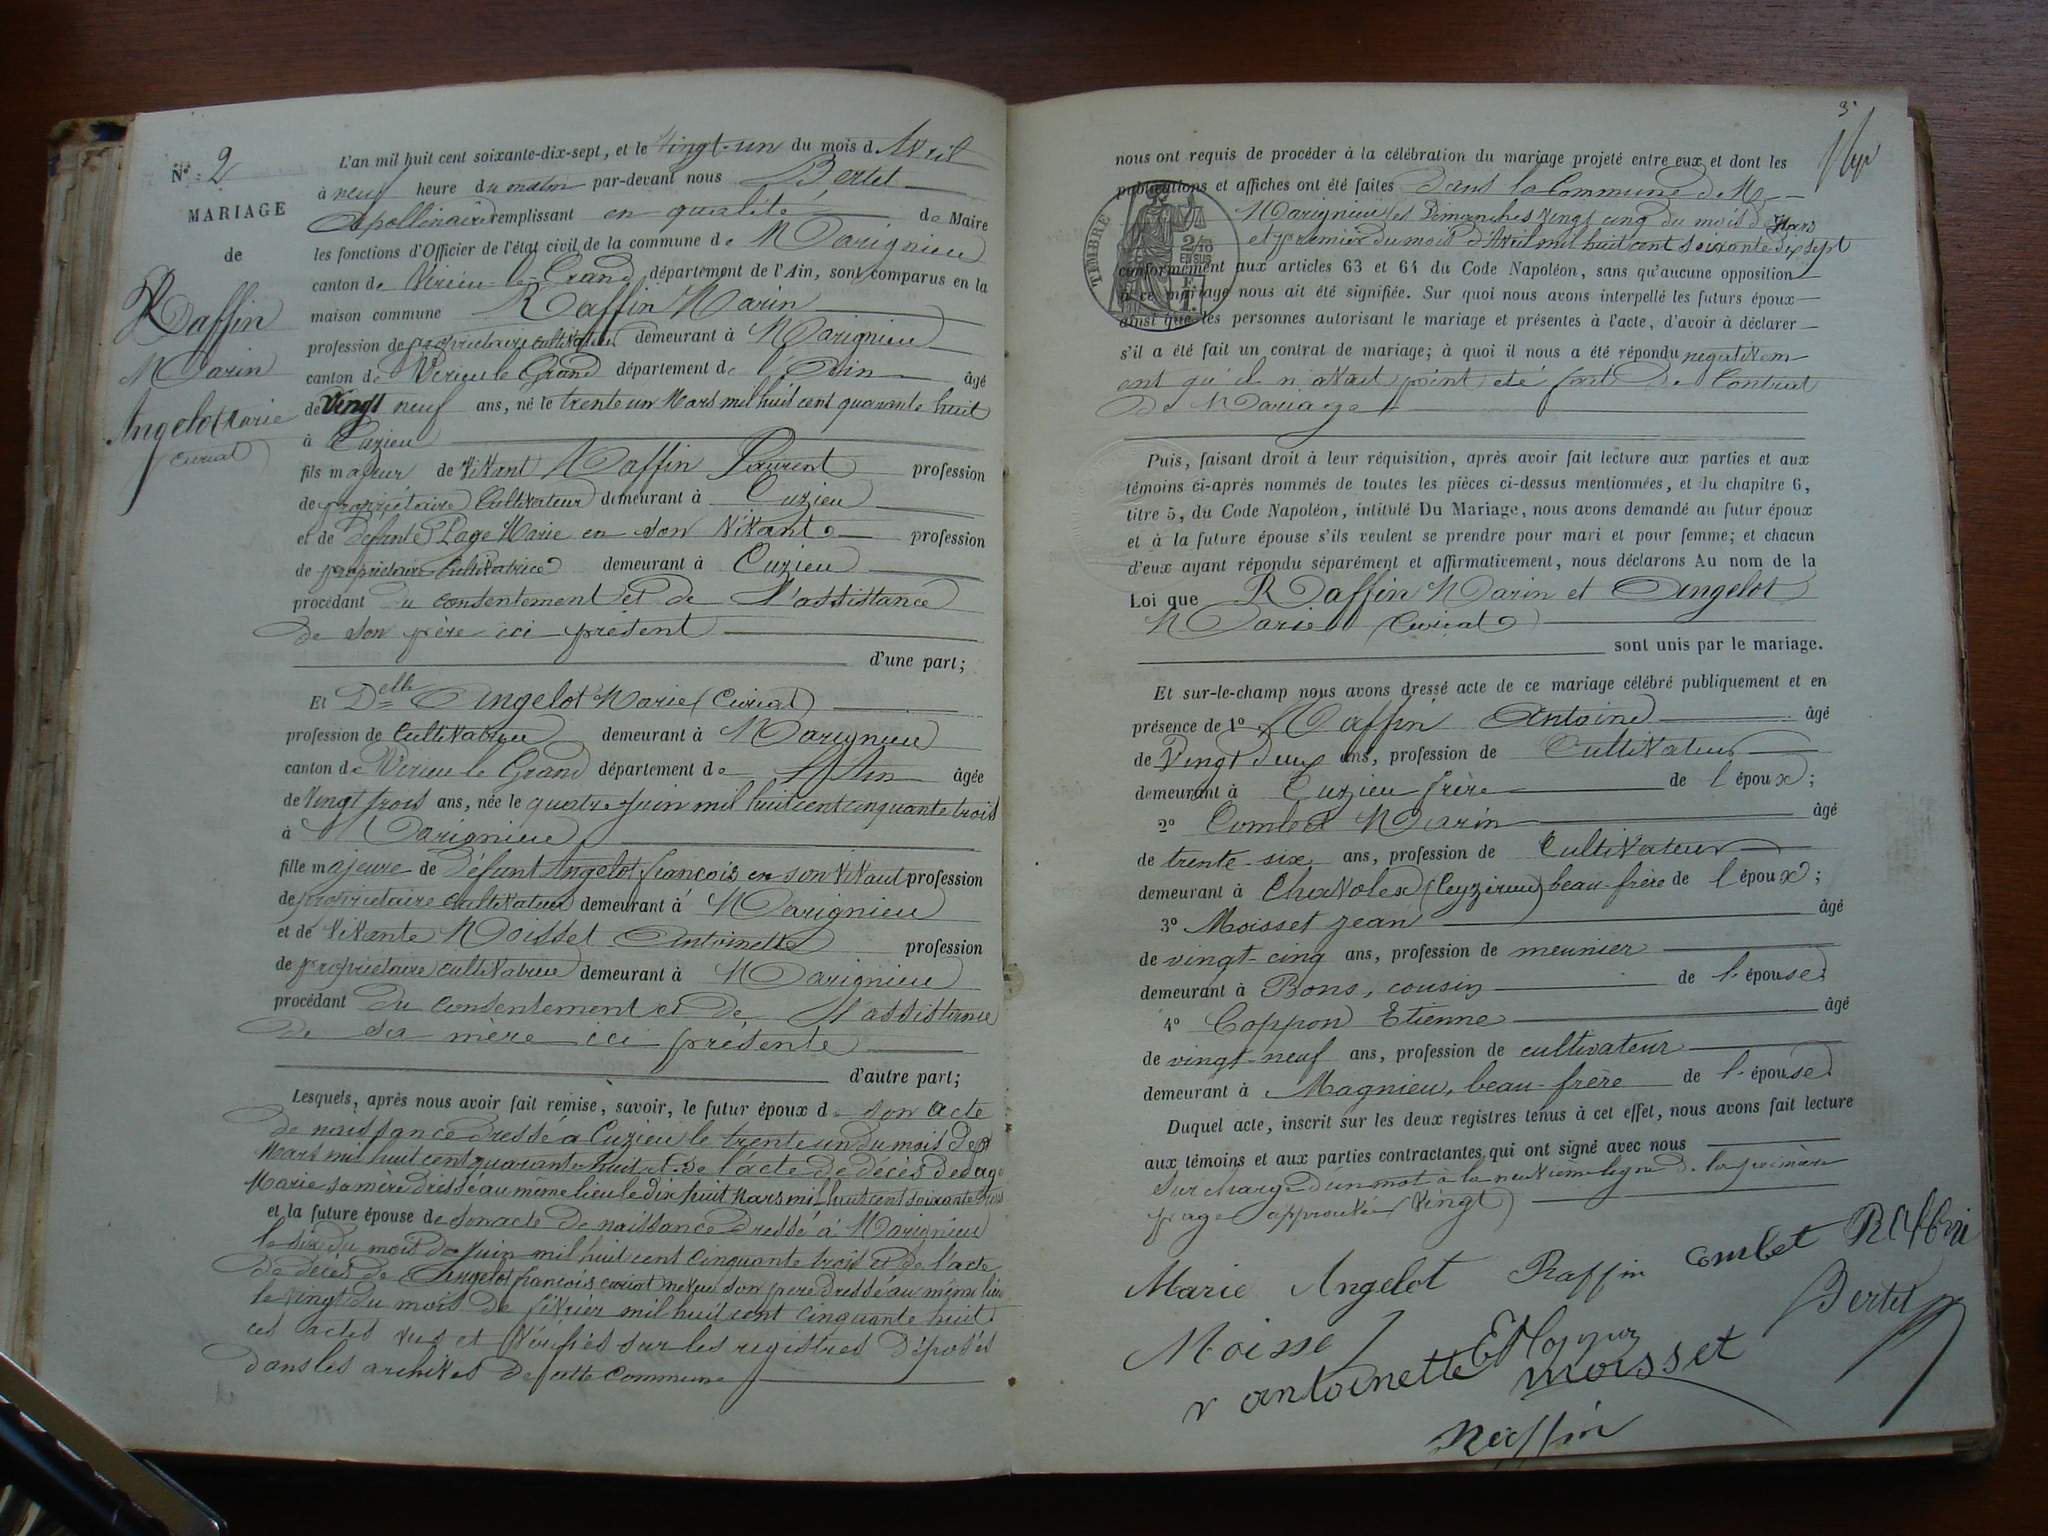 Nº 2
MARIAGE
de
Raffin
Marin
Angelot Marie
(Curial)
L'an mil huit cent soixante-dix-sept, et le vingt-un du mois d'Avril
à neuf heure du matin par-devant nous Bertet
Apollinaire remplissant en qualité de Maire
les fonctions d'Officier de l'état civil de la commune de Marignieu
canton de Virieu-le-Grand, département de l'Ain, sont comparus en la
maison commune Raffin Marin
profession de propriétaire cultivateur demeurant à Marignieu
canton de Virieu le Grand département de l'Ain âgé
de Vingt neuf ans, né le trente un Mars mil huit cent quarante huit
à Cuzieu
fils majeur de vivant Raffin Laurent profession
de propriétaire Cultivateur demeurant à Cuzieu
et de défunte Page Marie en son vivant profession
de propriétaire Cultivatrice demeurant à Cuzieu
procédant du consentement et de l'assistance
de son père ici présent
d'une part;
Et Delle Angelot Marie (Curial)
profession de Cultivatrice demeurant à Marignieu
canton de Virieu le Grand département de l'Ain âgée
de Vingt trois ans, née le quatre Juin mil huit cent cinquante trois
à Marignieu
fille majeure de défunt Angelot françois en son vivant profession
de propriétaire cultivateur demeurant à Marignieu
et de vivante Moisset Antoinette profession
de propriétaire cultivatrice demeurant à Marignieu
procédant du consentement et de l'assistance
de sa mère ici présente
d'autre part;
Lesquels, après nous avoir fait remise, savoir, le futur époux de son acte
de naissance dressé à Cuzieu le trente un du mois de
Mars mil huit cent quarante huit et de l'acte de décès de Page
Marie sa mère dressé au même lieu le dix huit Mars mil huit cent soixante
et la future épouse de son acte de naissance dressé à Marignieu
le six du mois de Juin mil huit cent cinquante trois et de l'acte
de décès de Angelot françois curial neveu son père dressé au même lieu
le vingt du mois de février mil huit cent cinquante huit
ces actes vus et vérifiés sur les registres déposés
dans les archives de cette commune
3
nous ont requis de procéder à la célébration du mariage projeté entre eux et dont les
publications et affiches ont été faites dans la Commune de M
Marignieu les Dimanches vingt cinq du mois de Mars
et premier du mois d'Avril mil huit cent soixante dix sept
TIMBRE
2/10
EN SUS
1 F.
conformément aux articles 63 et 64 du Code Napoléon, sans qu'aucune opposition
à ce mariage nous ait été signifiée. Sur quoi nous avons interpellé les futurs époux
ainsi que les personnes autorisant le mariage et présentes à l'acte, d'avoir à déclarer
s'il a été fait un contrat de mariage; à quoi il nous a été répondu negativem
ent qu'il n'avait point eté fait de Contrat
de Mariage
Puis, faisant droit à leur réquisition, après avoir fait lecture aux parties et aux
témoins ci-après nommés de toutes les pièces ci-dessus mentionnées, et du chapitre 6,
titre 5, du Code Napoléon, intitulé Du Mariage, nous avons demandé au futur époux
et à la future épouse s'ils veulent se prendre pour mari et pour femme; et chacun
d'eux ayant répondu séparément et affirmativement, nous déclarons Au nom de la
Loi que Raffin Marin et Angelot
Marie (Curial)
sont unis par le mariage.
Et sur-le-champ nous avons dressé acte de ce mariage célébré publiquement et en
présence de 1º Raffin Antoine âgé
de Vingt deux ans, profession de Cultivateur
demeurant à Cuzieu frère de l'époux;
2º Combet Marin âgé
de trente-six ans, profession de Cultivateur
demeurant à (Ceyzérieu) beau-frère de l'époux;
3º Moisset jean âgé
de vingt-cinq ans, profession de meunier
demeurant à Bons, cousin de l'épouse;
4º Coppon Etienne âgé
de vingt-neuf ans, profession de cultivateur
demeurant à Magnieu, beau-frère de l'épouse.
Duquel acte, inscrit sur les deux registres tenus à cet effet, nous avons fait lecture
aux témoins et aux parties contractantes qui ont signé avec nous
Surcharge d'un mot à la neuvième ligne de la première
page approuvée (Vingt)
Marie Angelot Raffin Combet Raffin
Bertet
antoinette moisset
Raffin